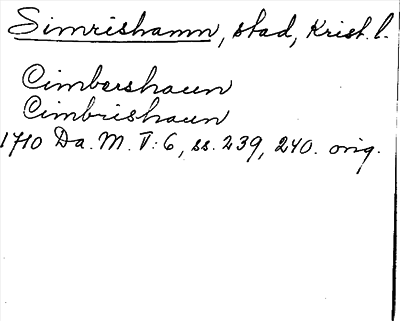 Simrishamn, stad, Krist. l.
Cimbershaun
Cimbrishaun
1710 Da. M. V:6, ss. 239, 240. orig.